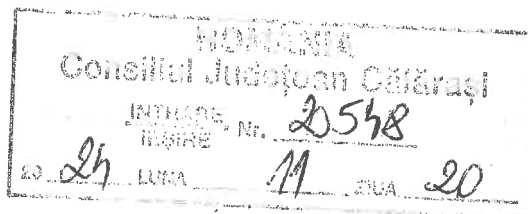 ROMÂNIA
Consiliul Județean Călărași
INTRARE
IEȘIRE Nr. 20548
20 24 LUNA 11 ZIUA 20